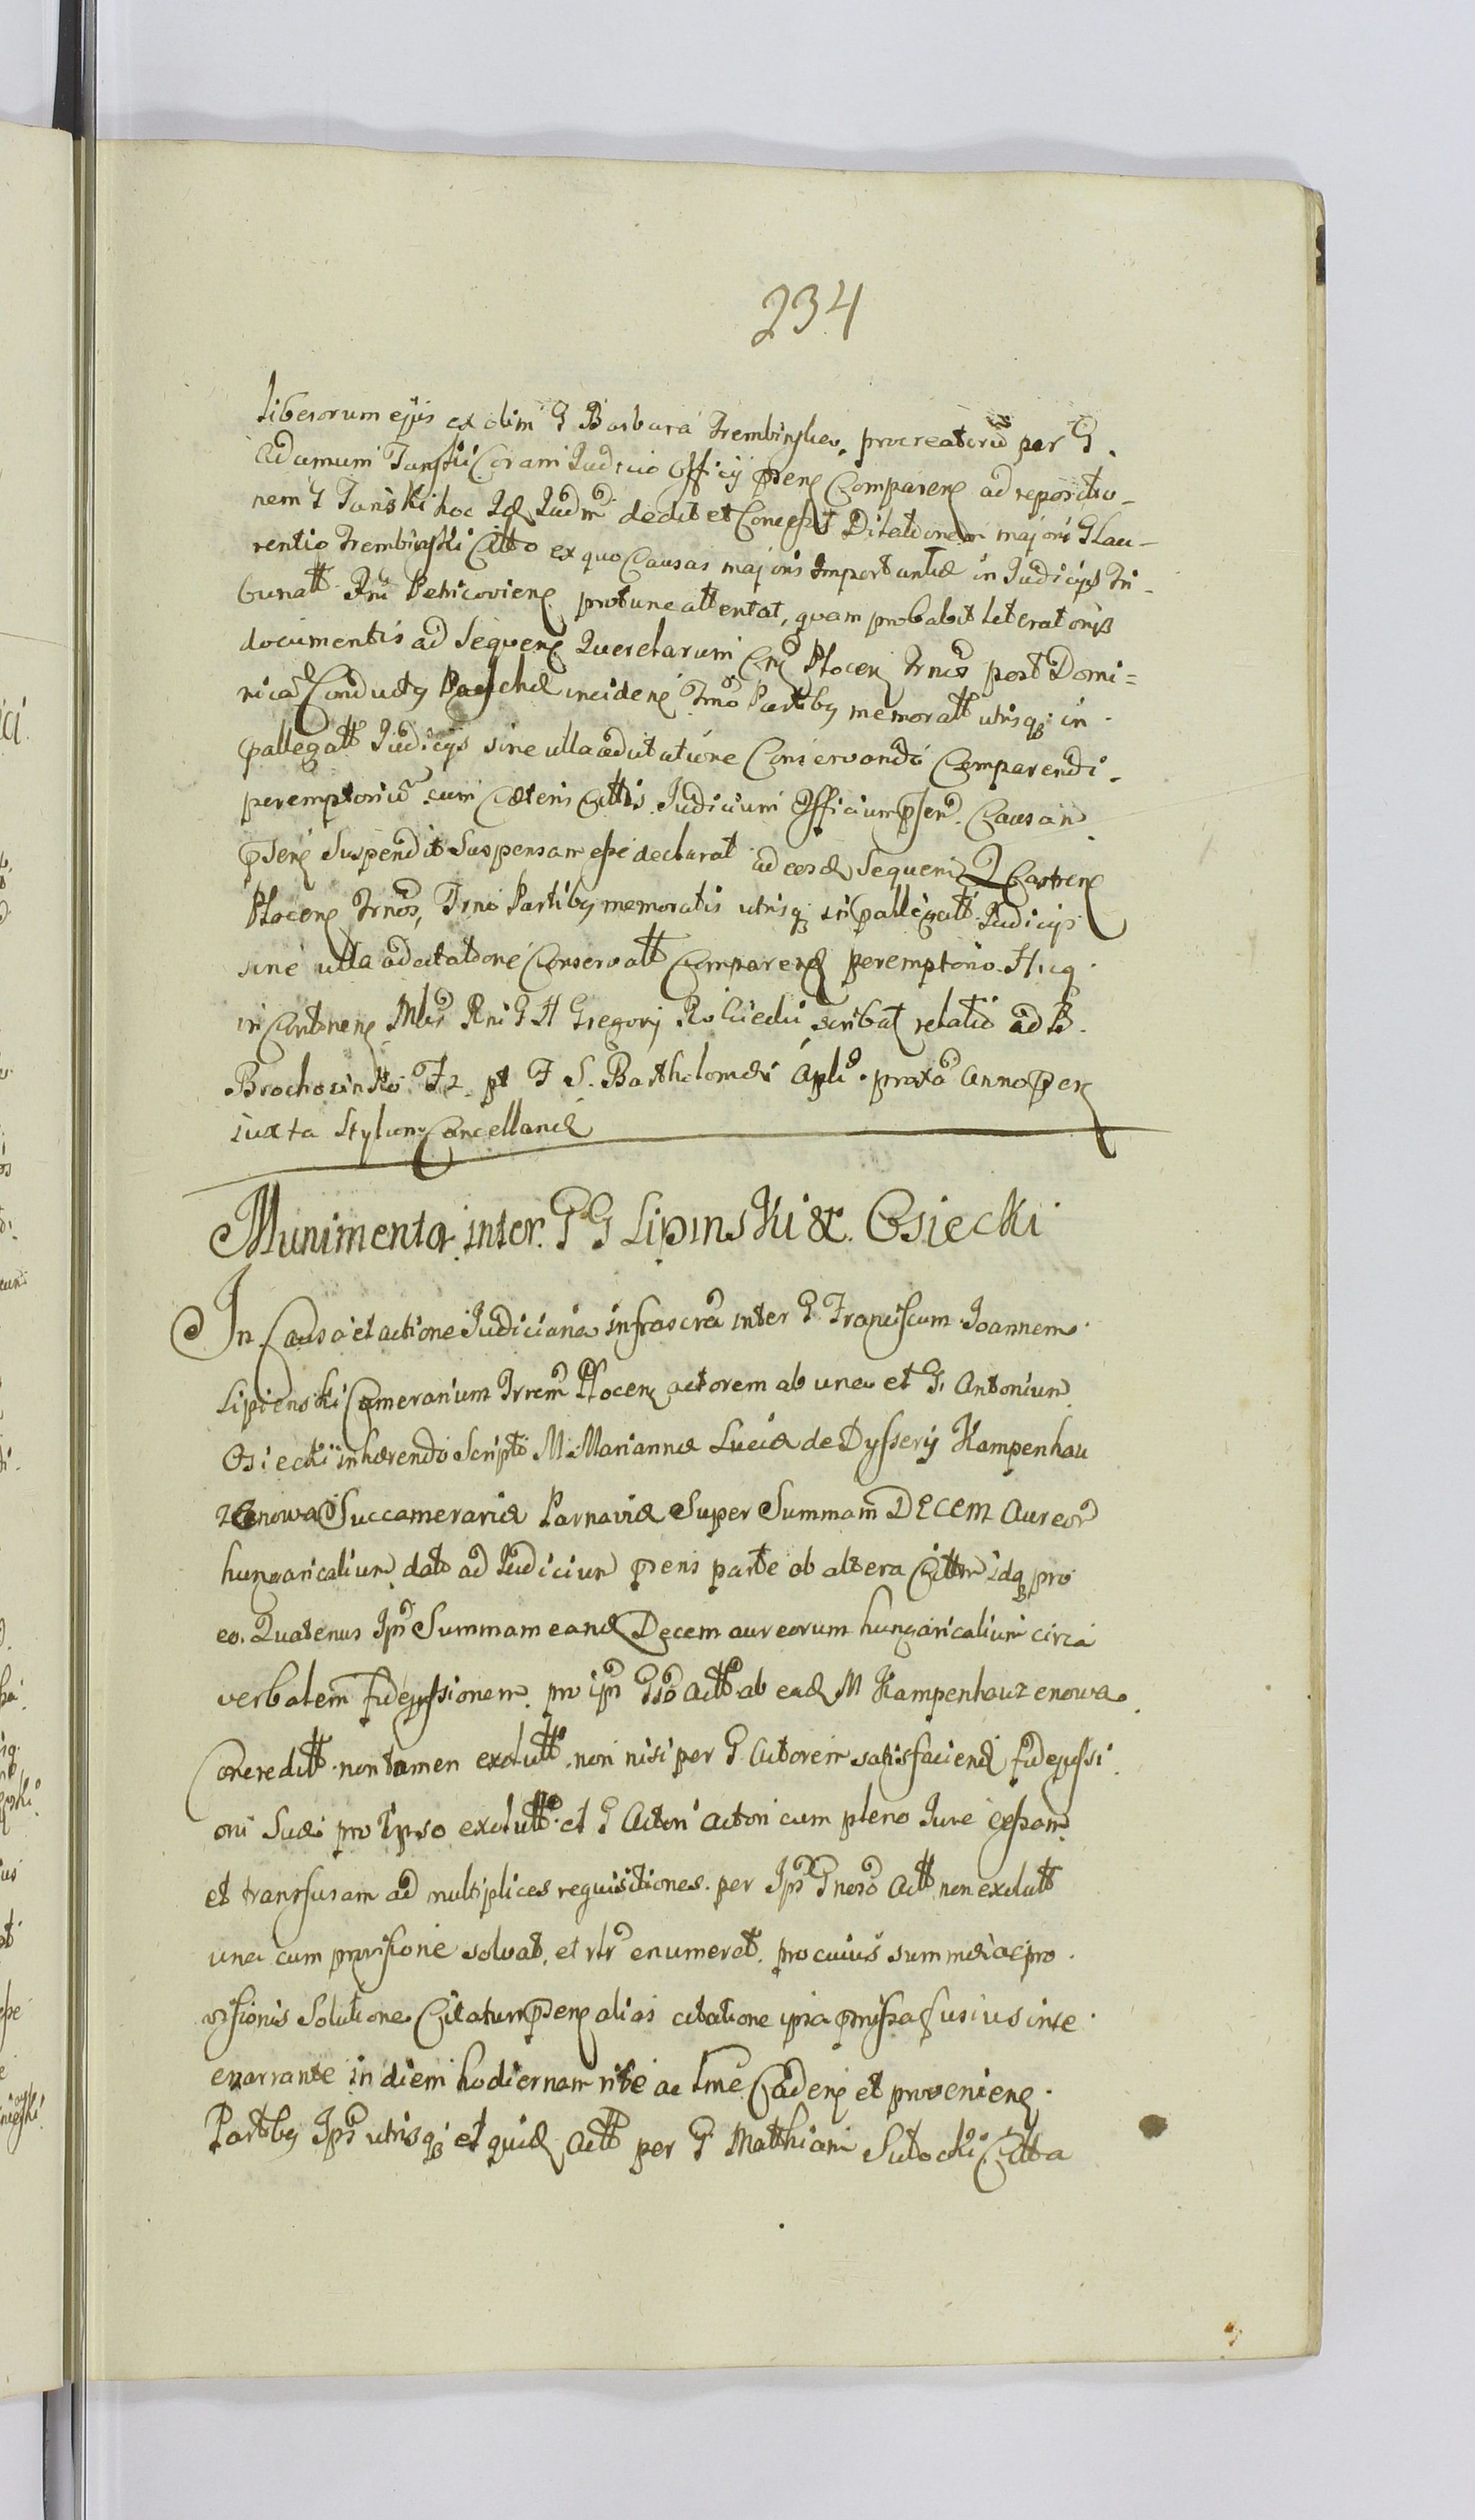 234
liberorum ejus ex olim G Barbara Trembinska, procreatorũ per G.
Adamum Tański Coram Judicio Officij pren Comparen ad repositio-
nem G Tański hoc Id Judm dedit et Concessit Dilationem majori G Lau-
rentio Trembinski Citto ex quo Causas majoris Importantiæ in Judicijs Tri-
bunatt Rni Petricovien protunc attentat, quam probabit literatorijs
documentis ad Sequen Querelarum Cres Plocen Trnos post Domi=
nicã Conductus Paschæ inciden Trno Partibus memoratt utrisq in
pallegatt Judicijs sine ulla adcitatione Conservandi Comparendi
peremptoriũ cum Cæteris Cittis Judicium Officium psen Causam
psen Suspendit Suspensam esse declarat ad eosd Sequen Q Castren
Plocen Trnos, Trno Partibus memoratis utrisq in pallegatt Judicijs
sine ulla adcitatione Conservatt Comparend peremptorio. Hicq
in Continen Mbr Rni G H Gregorij scribat relatio ad B.
Brochocinko F 2 pt F S. Bartholomæi Apli proxa Anno pen
iuxta Stylum Cancellariæ
Munimenta inter G G Lipinski & Osiecki
In Causa et actione Judiciaria infrascra inter G Franciscum Joannem
Lipienski Camerarium Trrem Plocen actorem ab una et G. Antonium
Osiecki inhærendo Scripto M Mariannæ Luciæ de Dysserij Kampenhau
zenowa Succamerariæ Parnaviæ Super Summam Decem Aureor
hungaricalium dato ad Judicium pens parte ab altera Cittm idq pro
eo. Quatenus Ips Summam eand Decem aureorum hungaricalium circa
verbalem fidejussionem pro ips Gso Actto ab ead M Kampenhauzenowa
Concreditt non tamen exolutt non nisi per G Actorem satisfaciend fidejussi
oni Suæ pro Ipso exolutt et G Actori actori cum pleno Jure cessam
et transfusam ad multiplices requisitiones per Ips Gnoso Actt non exolutt
una cum provisione solvat, et rlr enumeret pro cuius summæ ac pro
visionis Solutione Citatum psen alias citatione ipsa pmissa fusius in se
enarrante in diem hodiernam rite ac lme Caden et provenien
Partibus Ips utrisq et quid Actto per G Matthiam Sutocki Citta